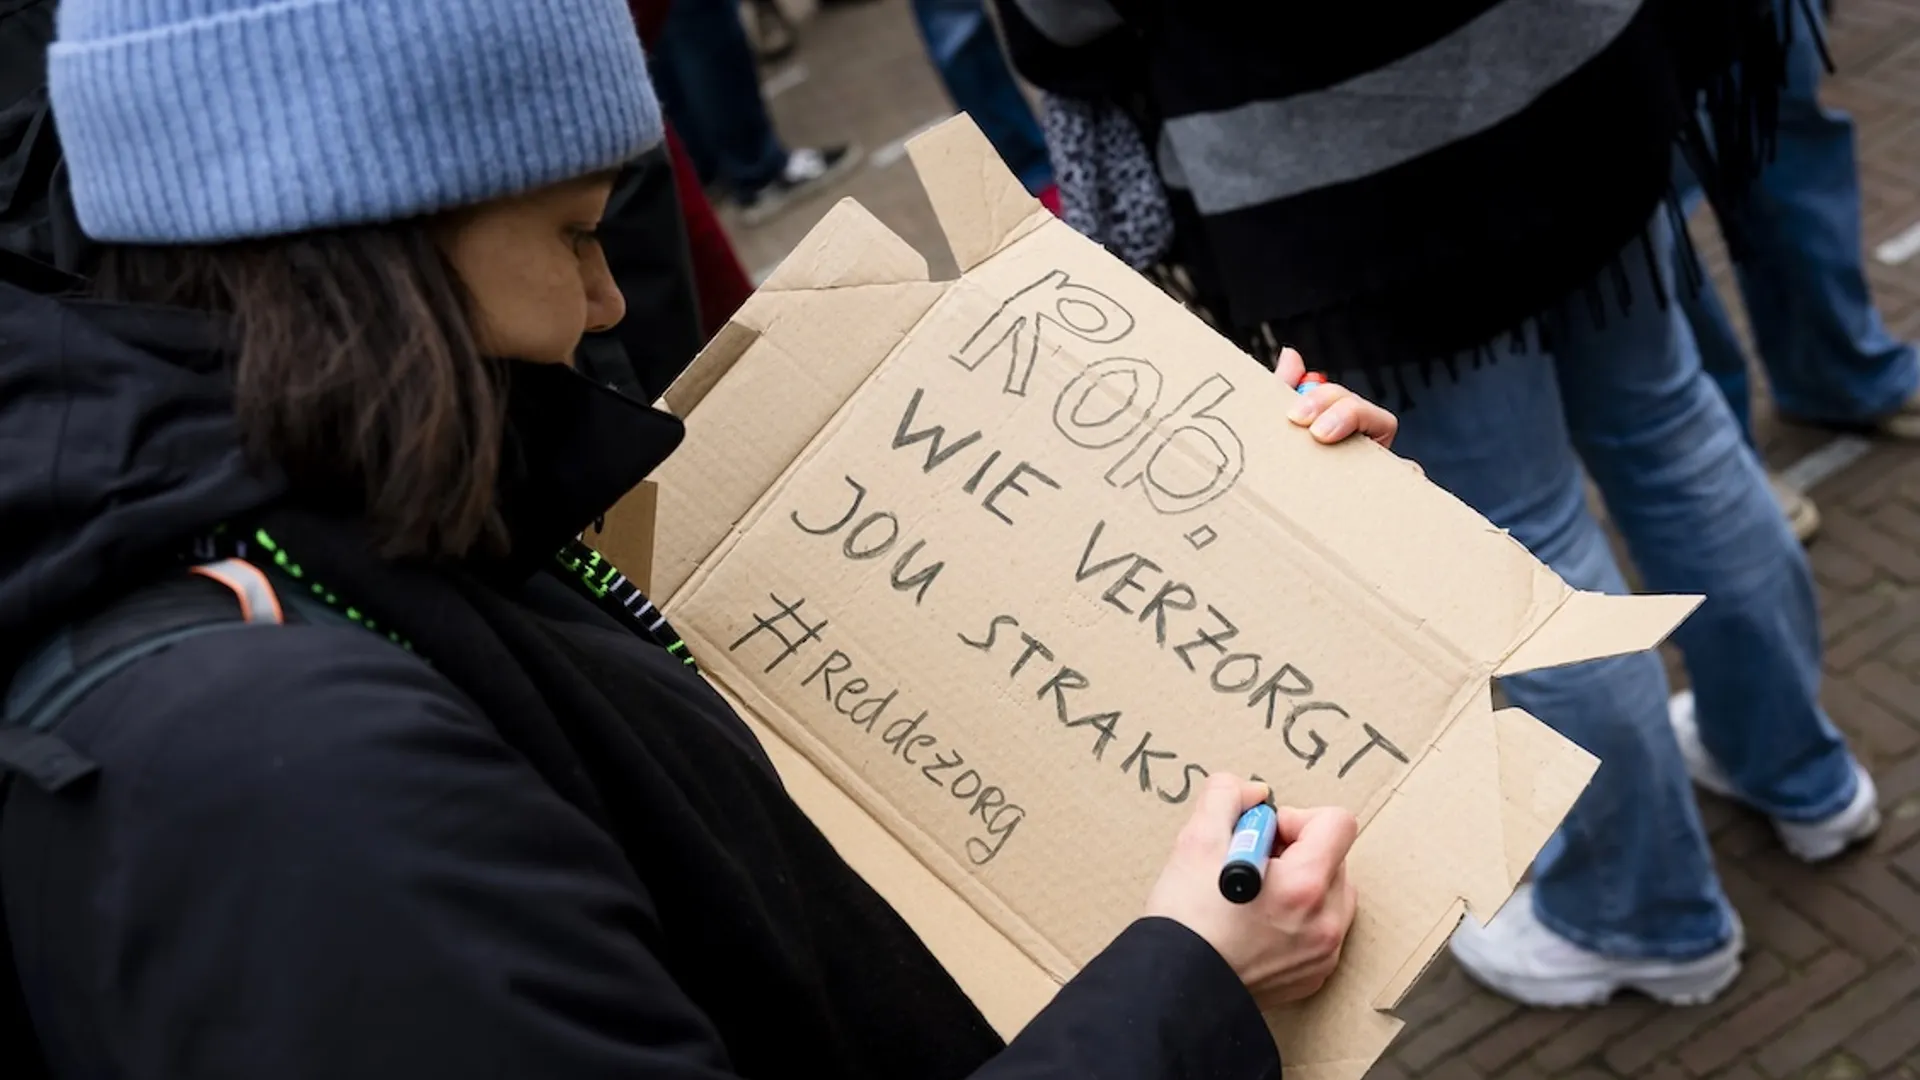 Rob.
WIE VERZORGT
JOU STRAKS
#Reddezorg